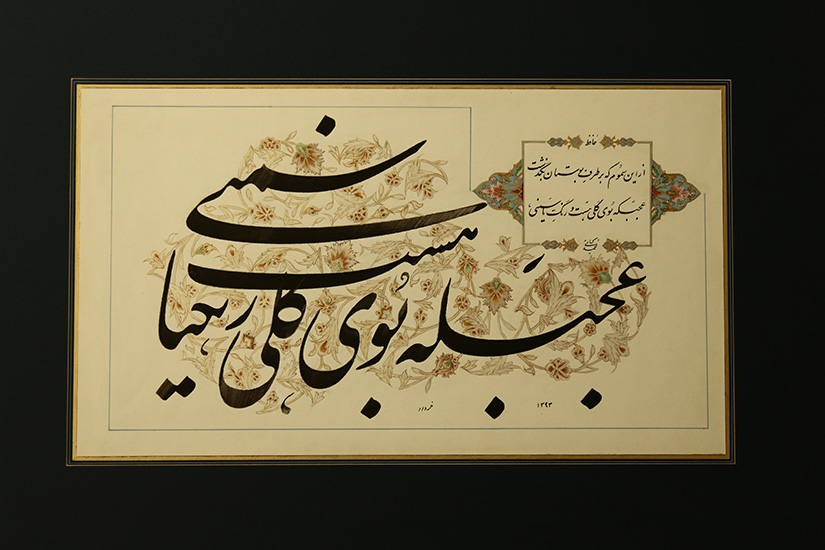 حافظ
از این سموم که بر طرف بوستان بگذشت
عجب که بوی گلی هست و رنگ یاسمنی
عجب که بوی گلی هست و رنگ یاسمنی
۱۳۹۳ خرداد